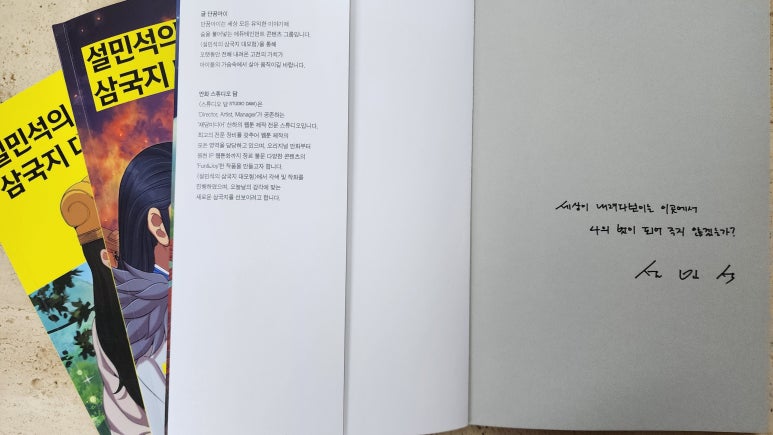 설민석의
삼국지 대
설민석의
삼국지 대
글 단꿈아이
단꿈아이는 세상 모든 유익한 이야기에
숨을 불어넣는 에듀테인먼트 콘텐츠 그룹입니다.
〈설민석의 삼국지 대모험〉을 통해
오랫동안 전해 내려온 고전의 가치가
아이들의 가슴속에서 살아 움직이길 바랍니다.
만화 스튜디오 담
〈스튜디오 담 STUDIO DAM〉은
'Director, Artist, Manager'가 공존하는
'재담미디어' 산하의 웹툰 제작 전문 스튜디오입니다.
최고의 전문 장비를 갖추어 웹툰 제작의
모든 영역을 담당하고 있으며, 오리지널 만화부터
원천 IP 웹툰화까지 장르 불문 다양한 콘텐츠의
'Fun&Joy'한 작품을 만들고자 합니다.
〈설민석의 삼국지 대모험〉에서 각색 및 작화를
진행하였으며, 오늘날의 감각에 맞는
새로운 삼국지를 선보이려고 합니다.
세상이 내려다보이는 이곳에서
나의 벗이 되어 주지 않겠는가?
설민석